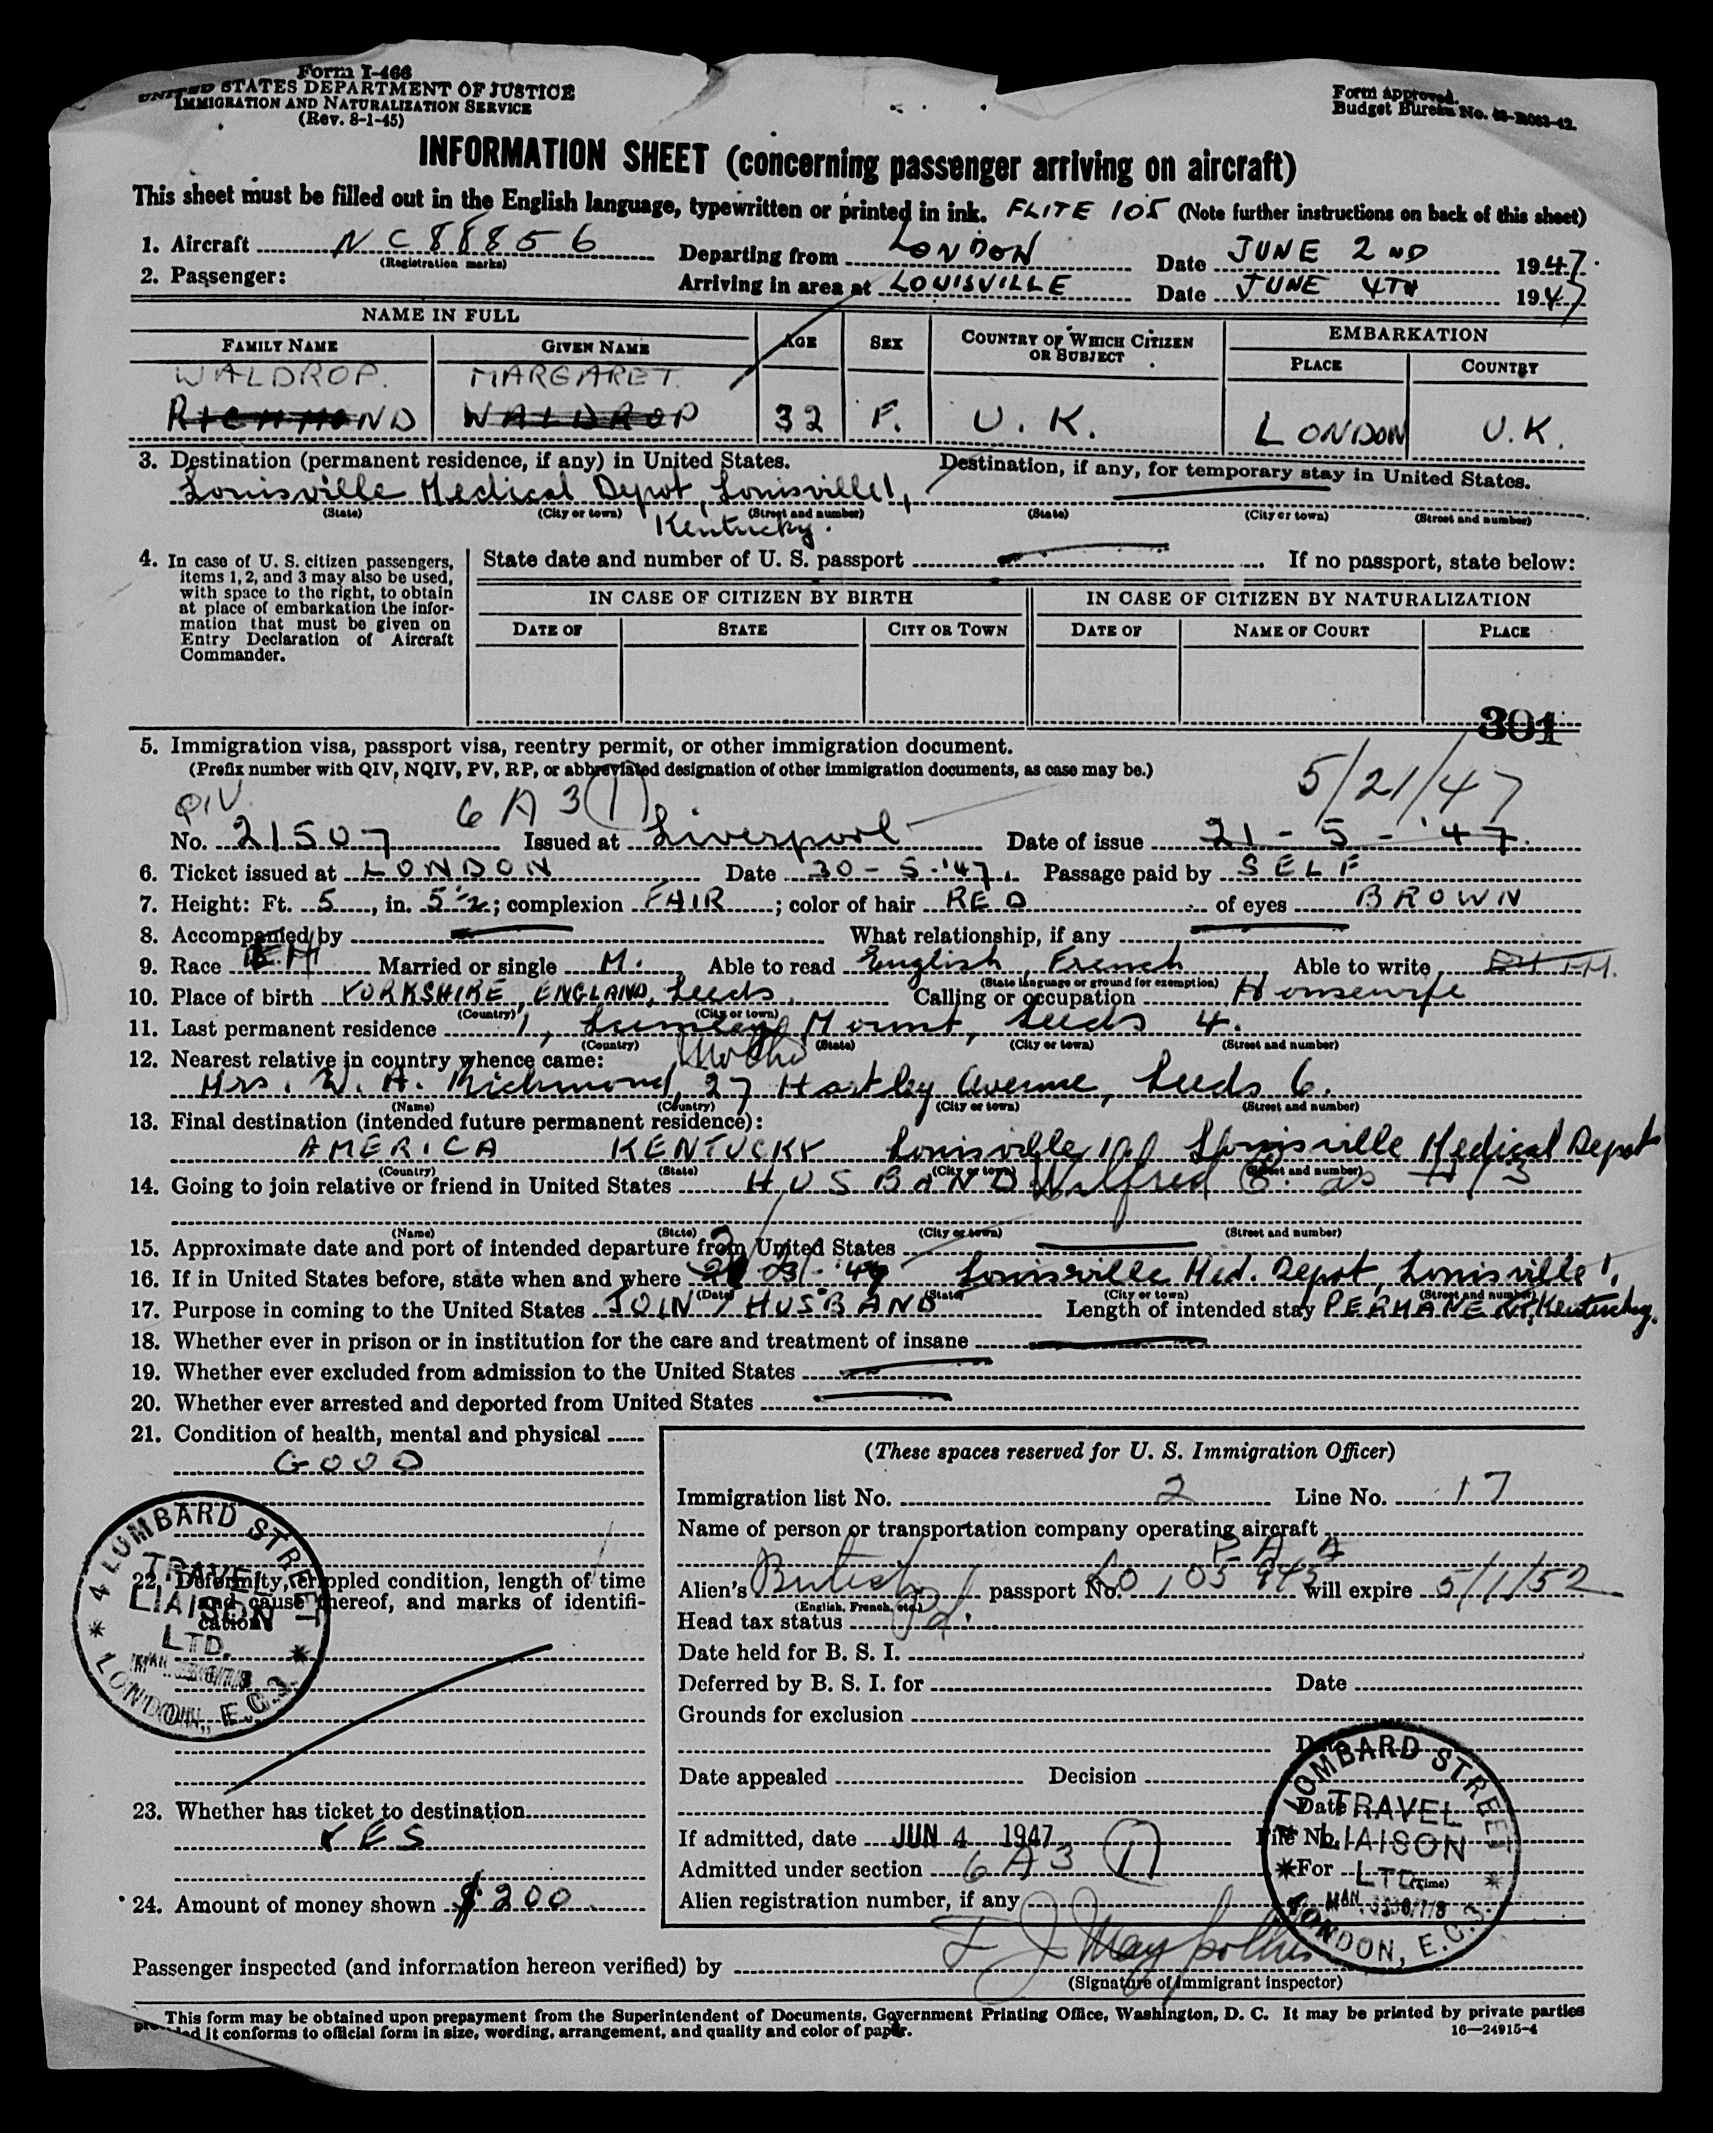 Form I-466
UNITED STATES DEPARTMENT OF JUSTICE
IMMIGRATION AND NATURALIZATION SERVICE
(Rev. 8-1-45)
Form approved.
Budget Bureau No.
INFORMATION SHEET (concerning passenger arriving on aircraft)
This sheet must be filled out in the English language, typewritten or printed in ink. FLITE 105 (Note further instructions on back of this sheet)
1. Aircraft NC88856 Departing from LONDON Date JUNE 2ND 1947.
(Registration marks)
2. Passenger: Arriving in area at LOUISVILLE Date JUNE 4TH 1947
NAME IN FULL AGE SEX COUNTRY OF WHICH CITIZEN OR SUBJECT EMBARKATION
FAMILY NAME GIVEN NAME PLACE COUNTRY
WALDROP. MARGARET.
RICHMOND WALDROP 32 F. U.K. LONDON U.K.
3. Destination (permanent residence, if any) in United States. Destination, if any, for temporary stay in United States.
Louisville Medical Depot, Louisville 1,
(State) (City or town) (Street and number) (State) (City or town) (Street and number)
Kentucky.
4. In case of U. S. citizen passengers, items 1, 2, and 3 may also be used, with space to the right, to obtain at place of embarkation the information that must be given on Entry Declaration of Aircraft Commander.
State date and number of U. S. passport If no passport, state below:
IN CASE OF CITIZEN BY BIRTH IN CASE OF CITIZEN BY NATURALIZATION
DATE OF STATE CITY OR TOWN DATE OF NAME OF COURT PLACE
301
5. Immigration visa, passport visa, reentry permit, or other immigration document.
(Prefix number with QIV, NQIV, PV, RP, or abbreviated designation of other immigration documents, as case may be.)
QIV 6 A 3 (1) 5/21/47
No. 21507 Issued at Liverpool Date of issue 21-5-'47.
6. Ticket issued at LONDON Date 30-5-'47. Passage paid by SELF
7. Height: Ft. 5, in. 5½; complexion FAIR; color of hair RED of eyes BROWN
8. Accompanied by What relationship, if any
9. Race Married or single M. Able to read English, French Able to write
(State language or ground for exemption)
10. Place of birth YORKSHIRE, ENGLAND, Leeds. Calling or occupation Housewife
(Country) (City or town)
11. Last permanent residence 1, Lumley Mount, Leeds 4.
(Country) (State) (City or town) (Street and number)
12. Nearest relative in country whence came: Mother
Mrs. W. A. Richmond, 27 Hartley Avenue, Leeds 6.
(Name) (Country) (City or town) (Street and number)
13. Final destination (intended future permanent residence):
AMERICA KENTUCKY Louisville Louisville Medical Depot
(Country) (State) (City or town) (Street and number)
14. Going to join relative or friend in United States HUSBAND Wilfred
(Name) (State) (City or town) (Street and number)
15. Approximate date and port of intended departure from United States
16. If in United States before, state when and where Louisville Med. Depot, Louisville 1,
(Date) (State) (City or town) (Street and number)
17. Purpose in coming to the United States JOIN HUSBAND Length of intended stay PERMANENT Kentucky.
18. Whether ever in prison or in institution for the care and treatment of insane
19. Whether ever excluded from admission to the United States
20. Whether ever arrested and deported from United States
21. Condition of health, mental and physical
GOOD
22. Deformity, crippled condition, length of time and cause thereof, and marks of identification
4 LOMBARD STREET
TRAVEL
LIAISON
LTD.
LONDON, E.C.3.
23. Whether has ticket to destination
YES
24. Amount of money shown $200
(These spaces reserved for U. S. Immigration Officer)
Immigration list No. 2 Line No. 17
Name of person or transportation company operating aircraft
P A A
Alien's British passport No. will expire 5/1/52
(English, French, etc.)
Head tax status Pd.
Date held for B. S. I.
Deferred by B. S. I. for Date
Grounds for exclusion
Date
Date appealed Decision
Date
If admitted, date JUN 4 1947 File No.
Admitted under section 6 A 3 (1) For
(Time)
Alien registration number, if any
4 LOMBARD STREET
TRAVEL
LIAISON
LTD.
LONDON, E.C.3.
Passenger inspected (and information hereon verified) by
(Signature of immigrant inspector)
This form may be obtained upon prepayment from the Superintendent of Documents, Government Printing Office, Washington, D. C. It may be printed by private parties
provided it conforms to official form in size, wording, arrangement, and quality and color of paper.
16—24915-4